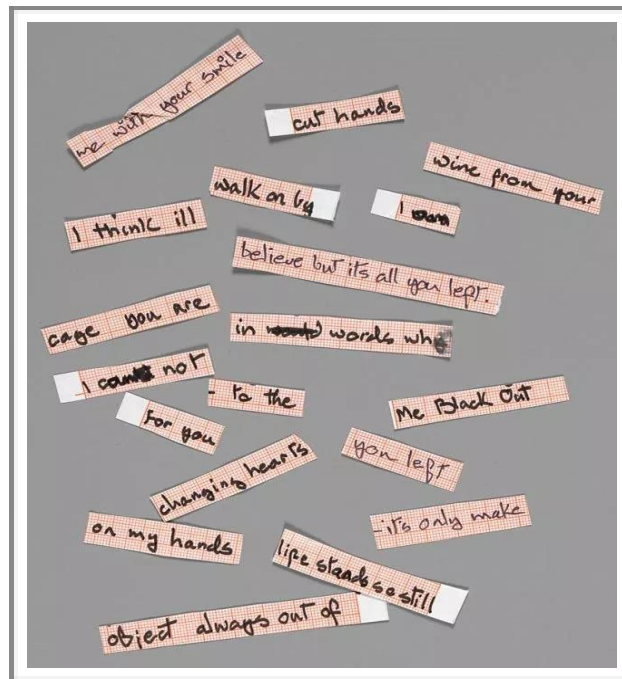 me with your smile
cut hands
wine from your
walk on by
I
I think ill
believe but its all you left.
cage you are
in words wh
I not
- to the
Me Black Out
for you
you left
changing hearts
it's only make
on my hands
life stands so still
object always out of